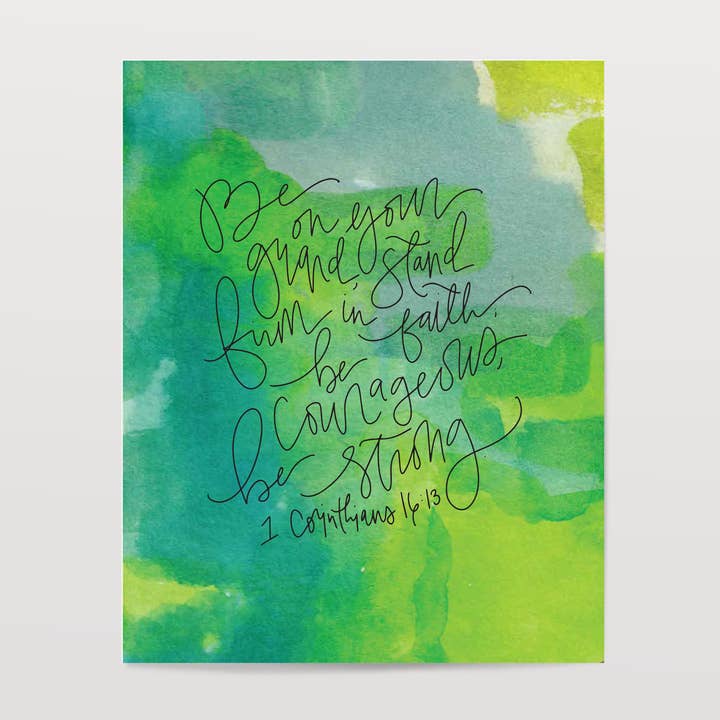 Be
on your
guard, stand
firm in faith.
be
courageous,
be strong
1 Corinthians 16:13